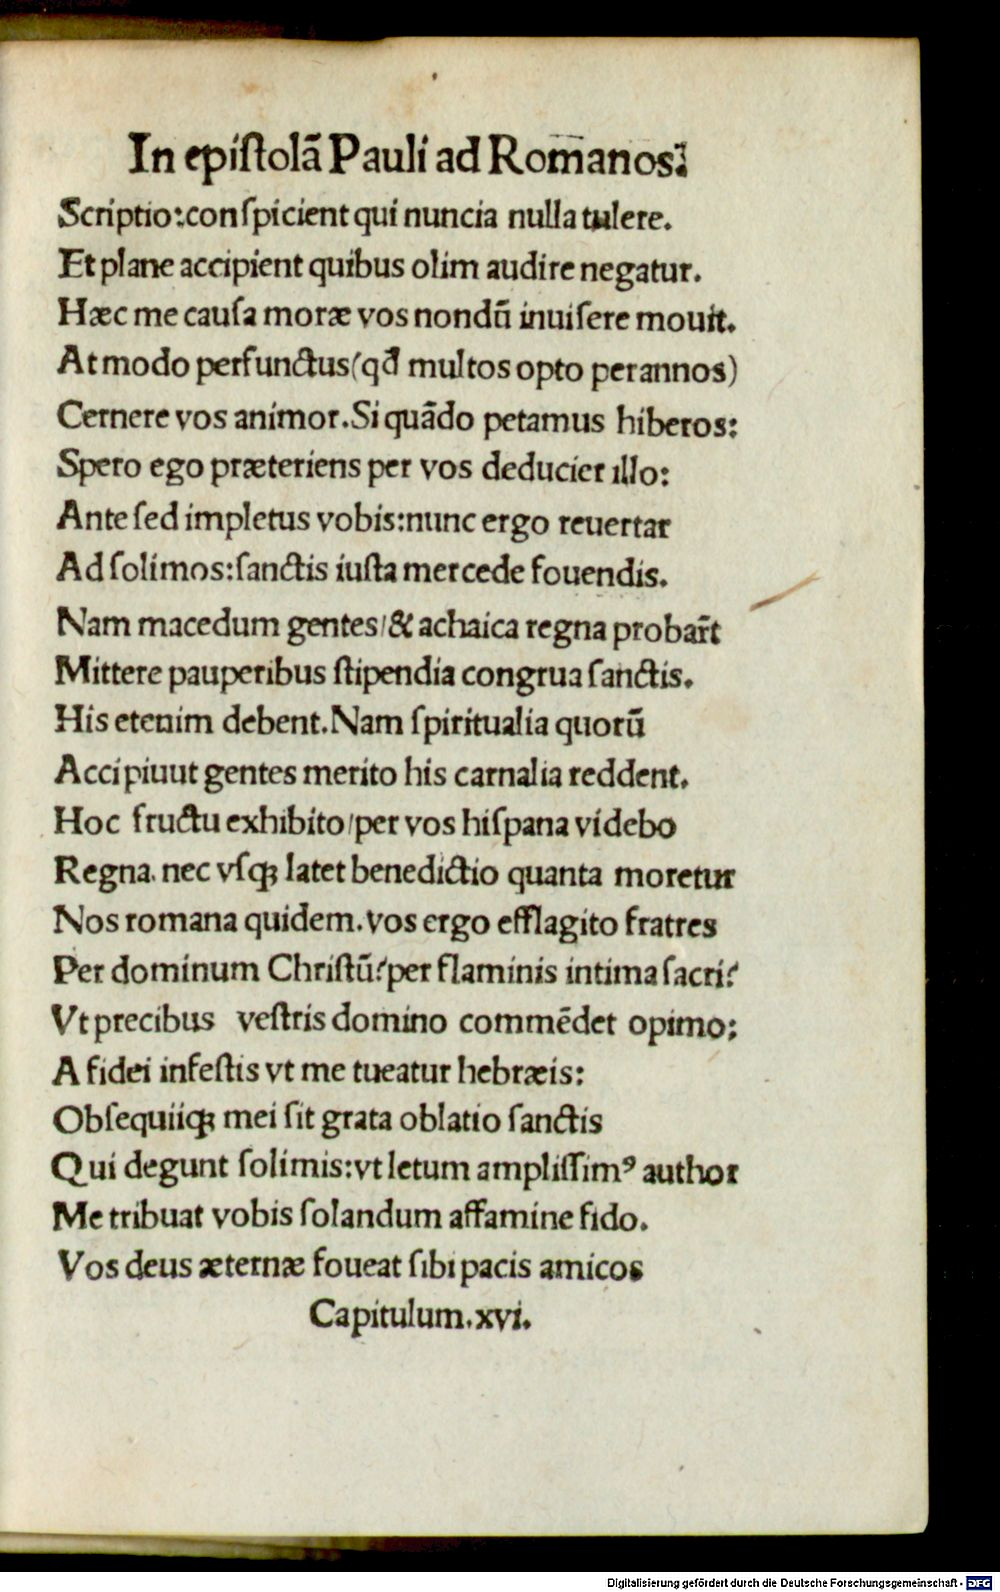 In epiſtolā Pauli ad Romanos:
Scriptio:conſpicient qui nuncia nulla tulere.
Et plane accipient quibus olim audire negatur.
Hæc me cauſa moræ vos nondū inuiſere mouit.
At modo perfunctus(qđ multos opto per annos)
Cernere vos animor.Si quādo petamus hiberos:
Spero ego præteriens per vos deducier illo:
Ante ſed impletus vobis:nunc ergo reuertar
Ad ſolimos:ſanctis iuſta mercede fouendis.
Nam macedum gentes/& achaica regna probar̄t
Mittere pauperibus ſtipendia congrua ſanctis.
His etenim debent.Nam ſpiritualia quorū
Accipiuut gentes merito his carnalia reddent.
Hoc fructu exhibito/per vos hiſpana videbo
Regna. nec vſqꝫ latet benedictio quanta moretur
Nos romana quidem.vos ergo efflagito fratres
Per dominum Chriſtū:per flaminis intima ſacri:
Vt precibus veſtris domino commēdet opimo;
A fidei infeſtis vt me tueatur hebræis:
Obſequiiqꝫ mei ſit grata oblatio ſanctis
Qui degunt ſolimis:vt letum ampliſſimꝰ author
Me tribuat vobis ſolandum affamine fido.
Vos deus æternæ foueat ſibi pacis amicos
Capitulum.xvi.
Digitalisierung gefördert durch die Deutsche Forschungsgemeinschaft - DFG